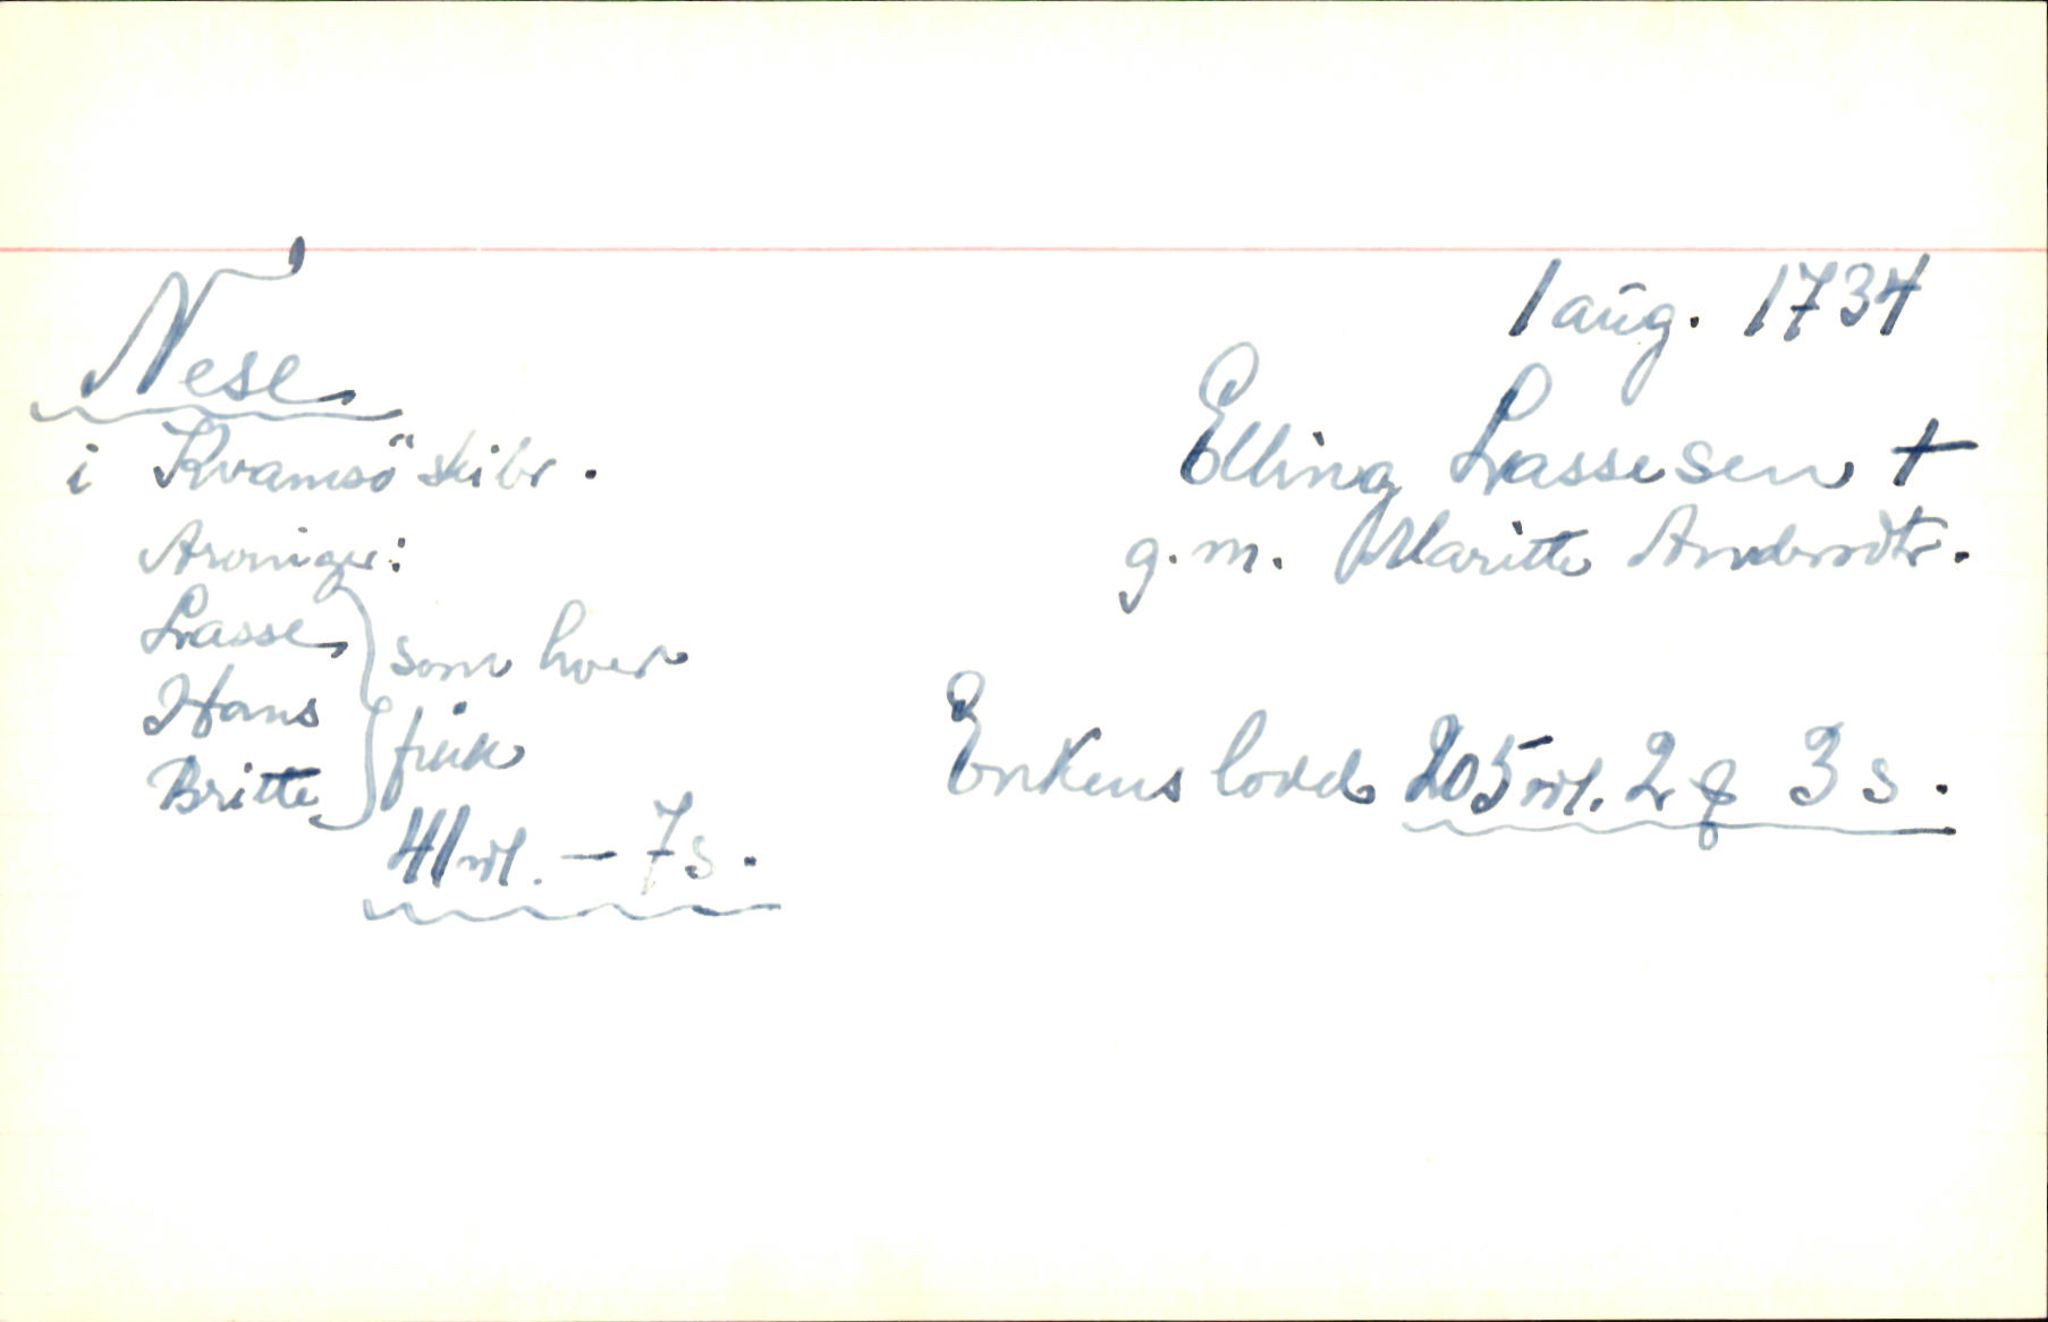 1 aug. 1734
Nese
i Kvamsö skibr.
Elling Lassesen +
g. m. Maritte Andersdtr.
Arvinger:
Lasse
Hans
Britte
som hver
fikk
41 rdl. – 7 s.
Enkens lodd 205 rdl. 2 ƒ 3 s.